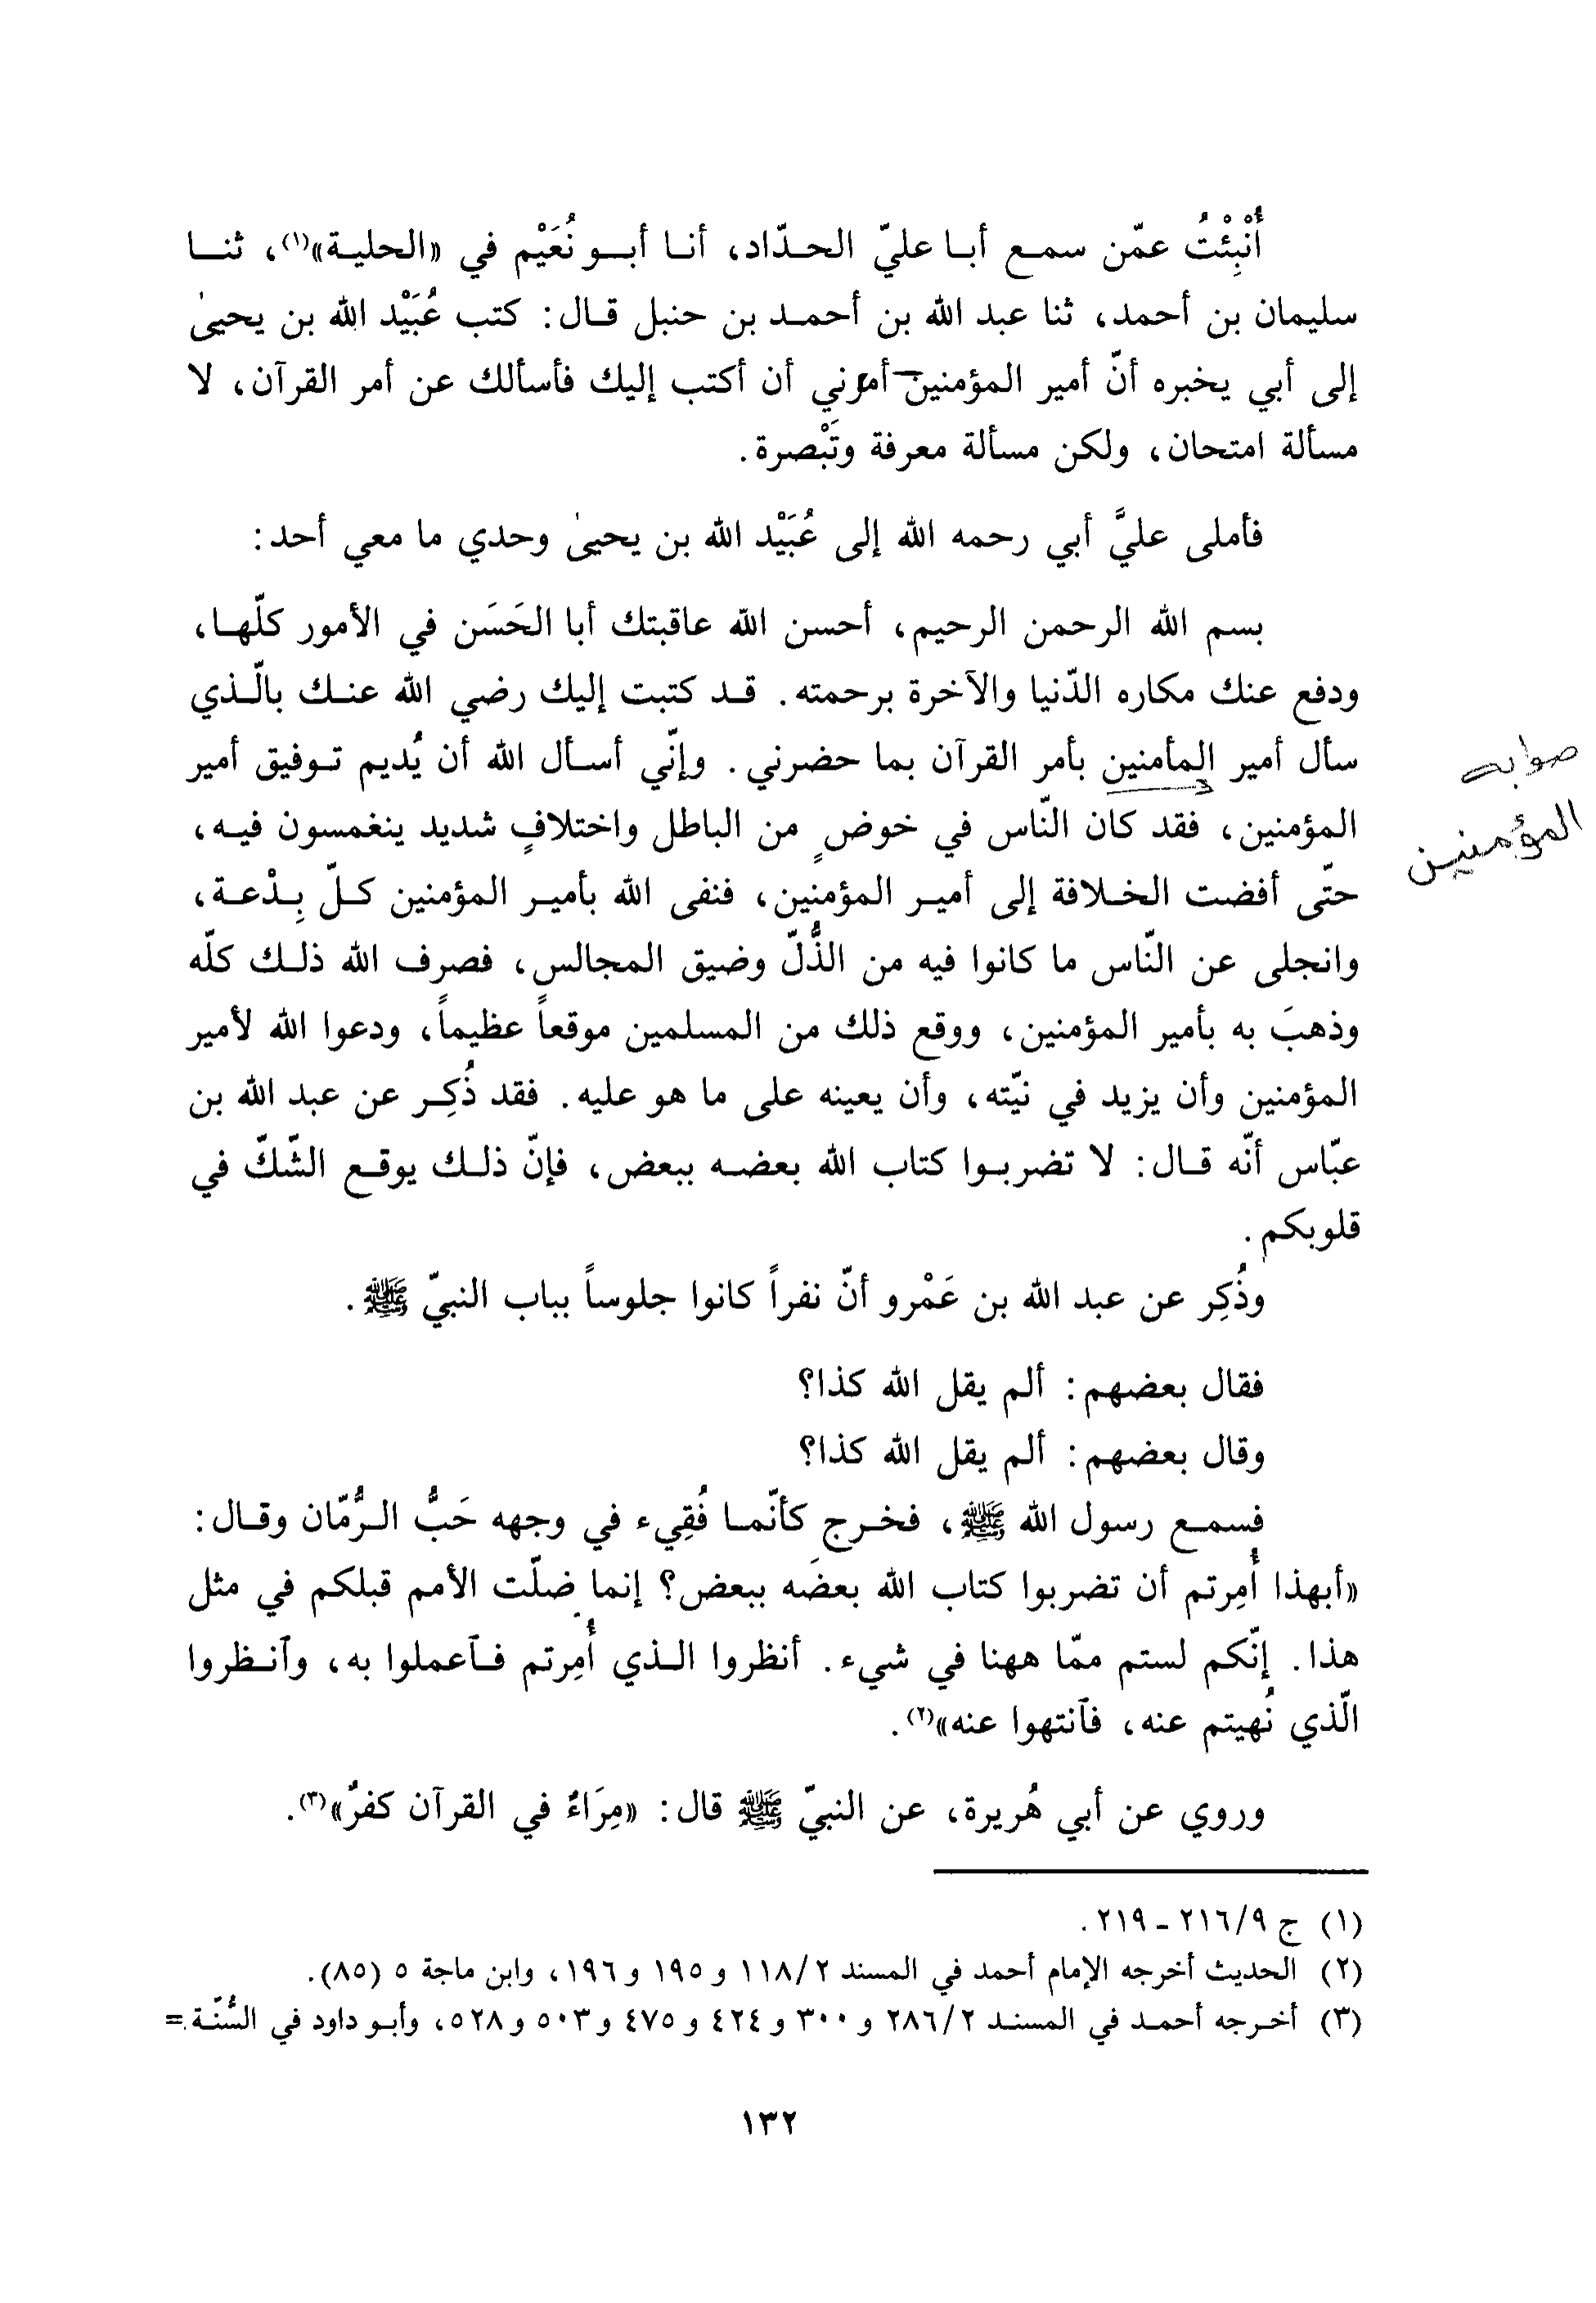 أُنْبِئْتُ عمّن سمع أبا عليّ الحدّاد، أنا أبو نُعَيْم في «الحلية»(١)، ثنا
سليمان بن أحمد، ثنا عبد الله بن أحمد بن حنبل قال: كتب عُبَيْد الله بن يحيىٰ
إلى أبي يخبره أنّ أمير المؤمنين أمرني أن أكتب إليك فأسألك عن أمر القرآن، لا
مسألة امتحان، ولكن مسألة معرفة وتَبْصرة.
فأملى عليَّ أبي رحمه الله إلى عُبَيْد الله بن يحيىٰ وحدي ما معي أحد:
بسم الله الرحمن الرحيم، أحسن الله عاقبتك أبا الحَسَن في الأمور كلّها،
ودفع عنك مكاره الدّنيا والآخرة برحمته. قد كتبت إليك رضي الله عنك بالّذي
سأل أمير المأمنين بأمر القرآن بما حضرني. وإنّي أسأل الله أن يُديم توفيق أمير
صوابه
المؤمنين، فقد كان النّاس في خوضٍ من الباطل واختلافٍ شديد ينغمسون فيه،
المؤمنين
حتّى أفضت الخلافة إلى أمير المؤمنين، فنفى الله بأمير المؤمنين كلّ بِدْعة،
وانجلى عن النّاس ما كانوا فيه من الذُّلّ وضيق المجالس، فصرف الله ذلك كلّه
وذهبَ به بأمير المؤمنين، ووقع ذلك من المسلمين موقعاً عظيماً، ودعوا الله لأمير
المؤمنين وأن يزيد في نيّته، وأن يعينه على ما هو عليه. فقد ذُكِر عن عبد الله بن
عبّاس أنّه قال: لا تضربوا كتاب الله بعضه ببعض، فإنّ ذلك يوقع الشّكّ في
قلوبكم.
وذُكِر عن عبد الله بن عَمْرو أنّ نفراً كانوا جلوساً بباب النبيّ ﷺ.
فقال بعضهم: ألم يقل الله كذا؟
وقال بعضهم: ألم يقل الله كذا؟
فسمع رسول الله ﷺ، فخرج كأنّما فُقِيء في وجهه حَبُّ الرُّمّان وقال:
«أبهذا أُمِرتم أن تضربوا كتاب الله بعضَه ببعض؟ إنما ضلّت الأمم قبلكم في مثل
هذا. إنّكم لستم ممّا ههنا في شيء. أنظروا الذي أُمِرتم فٱعملوا به، وٱنظروا
الّذي نُهيتم عنه، فٱنتهوا عنه»(٢).
وروي عن أبي هُريرة، عن النبيّ ﷺ قال: «مِرَاءٌ في القرآن كفرٌ»(٣).
(١) ج ٩/٢١٦ - ٢١٩.
(٢) الحديث أخرجه الإمام أحمد في المسند ٢/١١٨ و ١٩٥ و ١٩٦، وابن ماجة ٥ (٨٥).
(٣) أخرجه أحمد في المسند ٢/٢٨٦ و ٣٠٠ و ٤٢٤ و ٤٧٥ و ٥٠٣ و ٥٢٨، وأبو داود في السُّنّة =
١٣٢